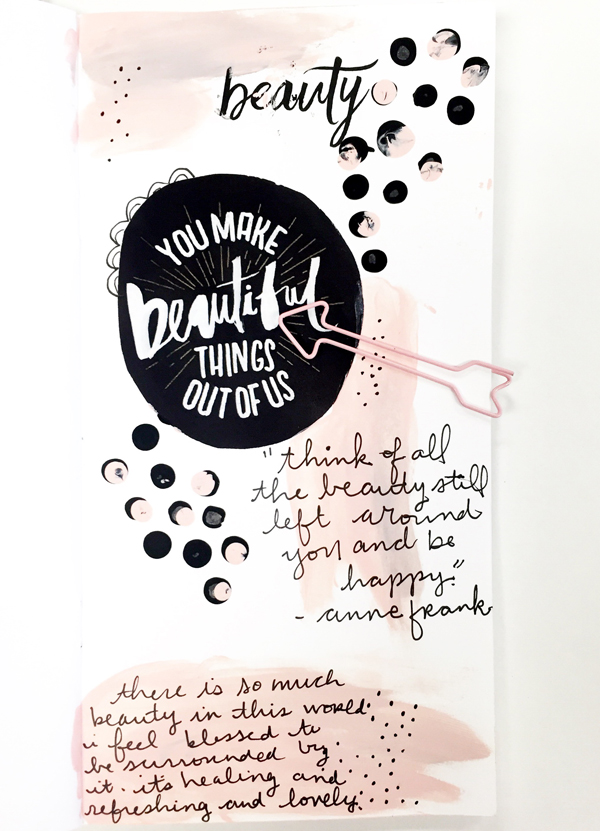 beauty
YOU MAKE
beautiful
THINGS
OUT OF US
"think of all
the beauty still
left around
you and be
happy."
- anne frank
there is so much
beauty in this world.
i feel blessed to
be surrounded by
it. it's healing and
refreshing and lovely.